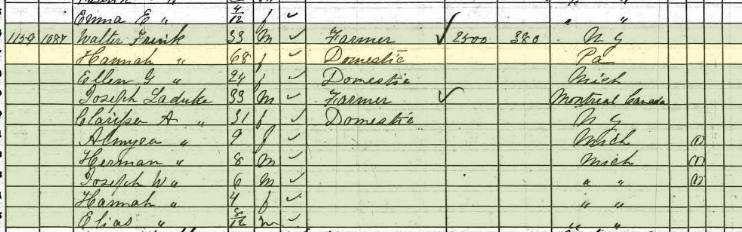 Emma E " 4/12 f ✓ " "
1159 1087 Walter Frink 33 M ✓ Farmer ✓ 2500 380 N Y
Hannah " 68 f ✓ Domestic Pa
Ellen G " 24 f ✓ Domestic Mich
Joseph Laduke 33 M ✓ Farmer ✓ Montreal Canada
Clarissa A " 31 f ✓ Domestic N Y
Almyra " 9 f ✓ Mich (1)
Herman " 8 M ✓ Mich (1)
Joseph W " 6 M ✓ " " (1)
Hannah " 4 f ✓ " "
Elias " /12 m ✓ " "